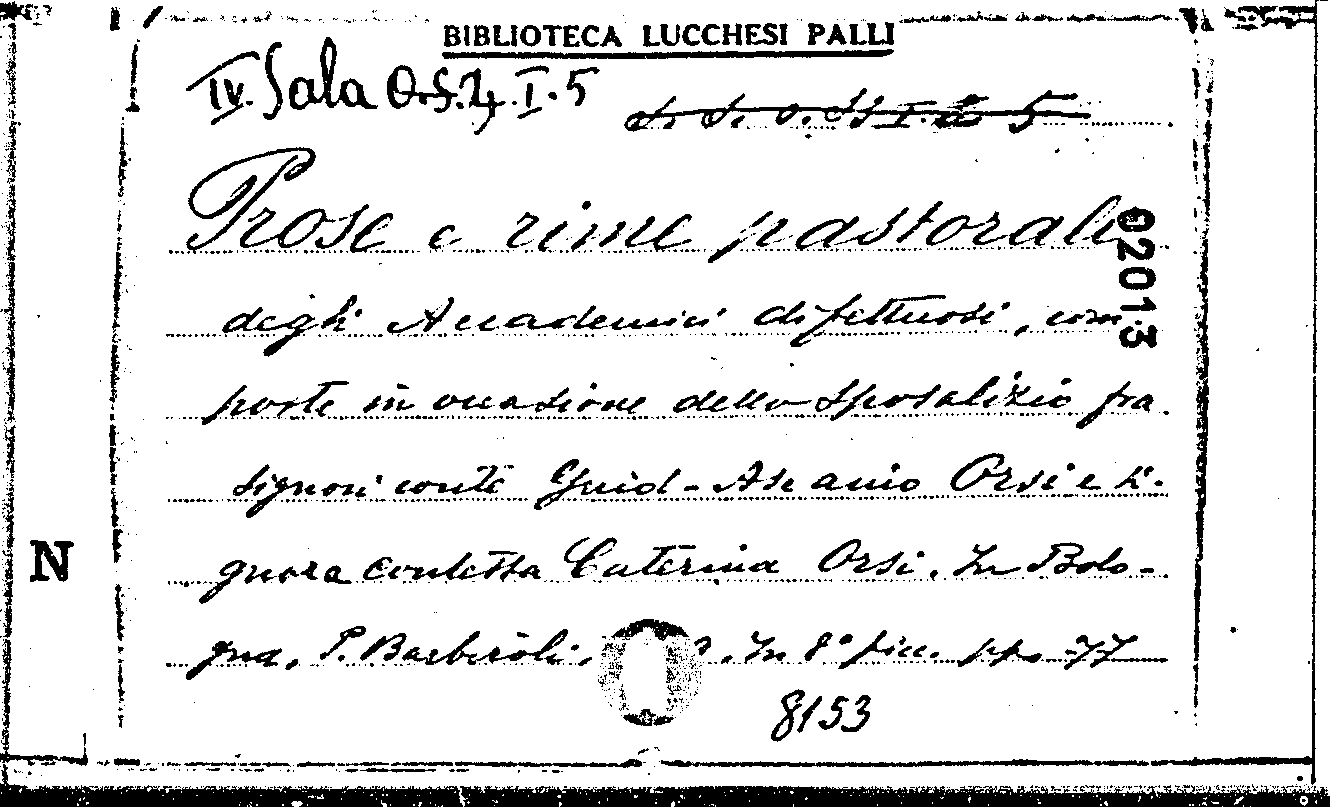 BIBLIOTECA LUCCHESI PALLI
IV. Sala O.S.4. I.5
Prose e rime pastorali
02013
degli Accademici difettuosi, com
poste in occasione dello Sposalizio fra
signori conte Guid-Ascanio Orsi e Si-
gnora contessa Caterina Orsi. In Bolo-
N
gna, P. Barbiroli, . In 8° picc. pp. 77
8153